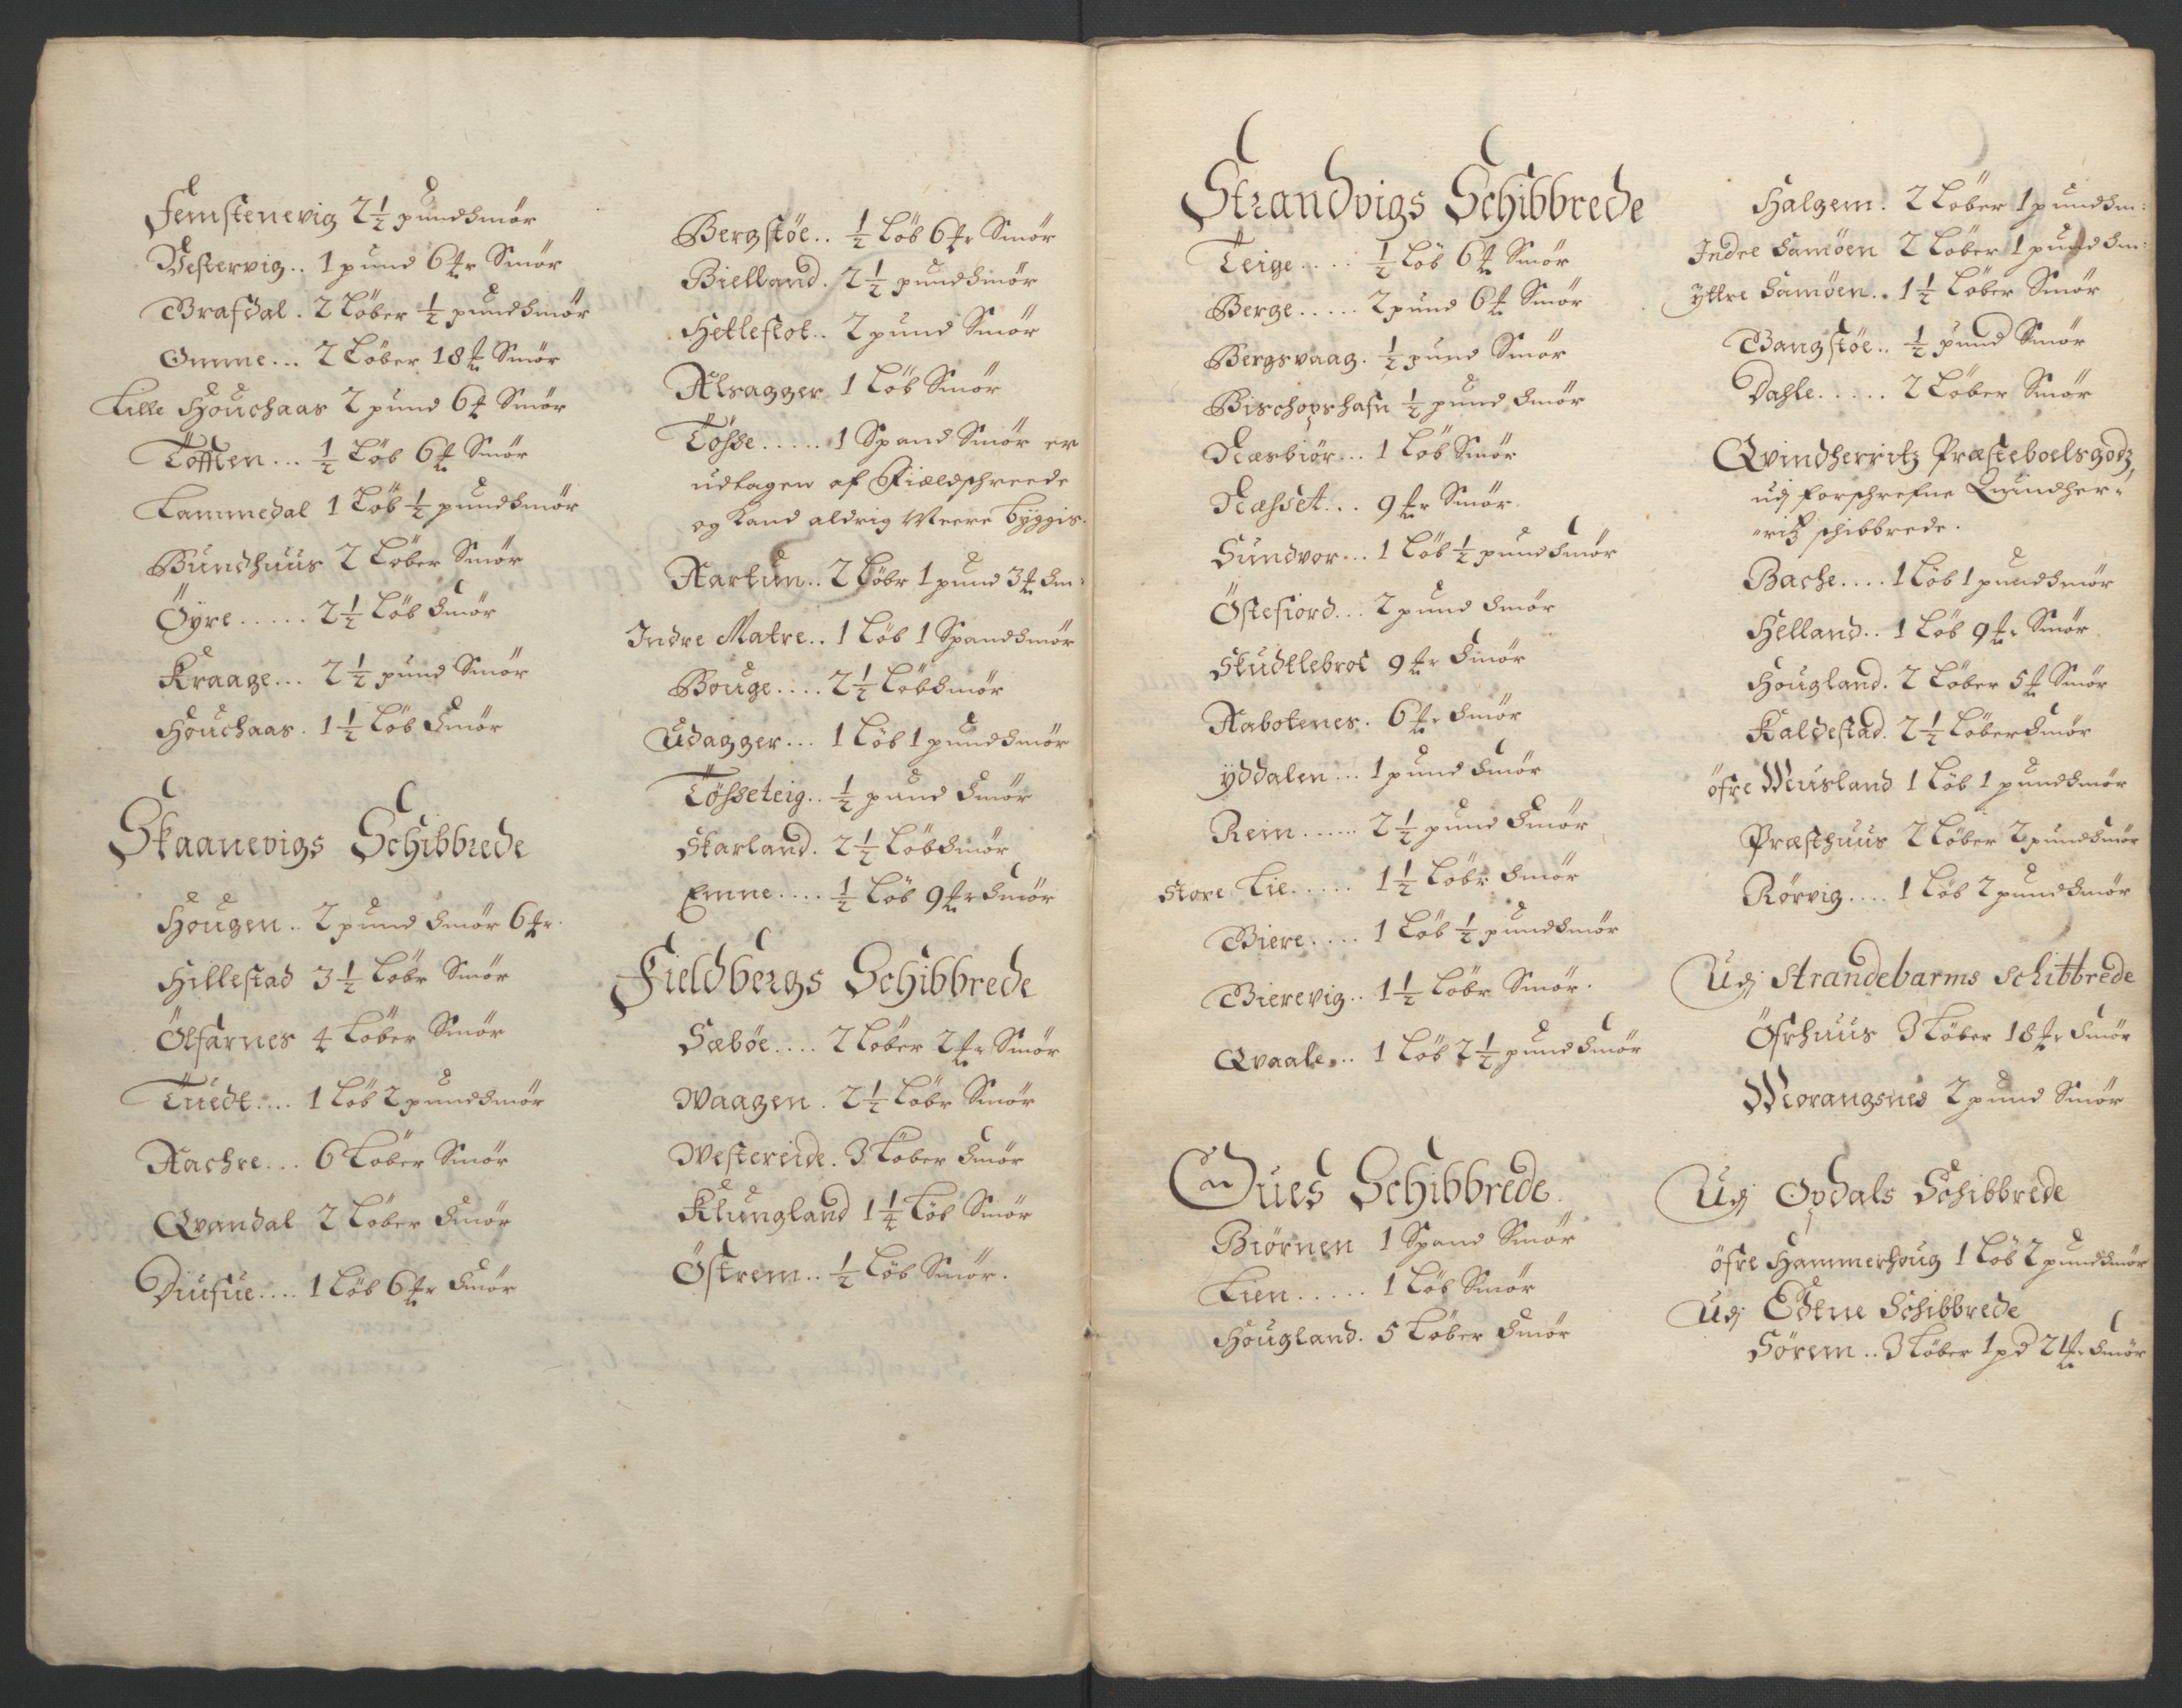 Femstenevig 2½ pund Smör
Vestervig.. 1 pund 6 ℔r Smör
Brafdal. 2 Löber ½ pund Smör
Omme... 2 Löber 18 ℔ Smör
Lille Houchaas 2 pund 6 ℔ Smör
Tofften... ½ Löb 6 ℔ Smör
Lammedal 1 Löb ½ pund Smör
Bundhuus 2 Löber Smör
Öyre..... 2½ Löb Smör
Kraage... 2½ pund Smör
Houchaas. 1½ Löb Smör
Skaanevigs Schibbrede
Hougen.. 2 pund Smör 6 ℔r.
Hillestad 3½ Löbr Smör
Ölfarnes 4 Löber Smör
Tuedt.... 1 Löb 2 pund Smör
Aachre... 6 Löber Smör
Qvandal 2 Löber Smör
Diufue.... 1 Löb 6 ℔r Smör
Bergstöe.. ½ Löb 6 ℔r Smör
Bielland. 2½ pund Smör
Hetleflot.. 2 pund Smör
Alsagger 1 Löb Smör
Tösse..... 1 Spand Smör er
udtagen af Fieldschreede
og kand aldrig Meere byggis.
Aartun.. 2 Löbr 1 pund 3 ℔ Sm:
Indre Matre.. 1 Löb 1 Spand Smör
Bouge.... 2½ Löb Smör
Udagger... 1 Löb 1 pund Smör
Tösseteig.. ½ pund Smör
Skarland. 2½ Löb Smör
Emne.... ½ Löb 9 ℔r Smör
Fieldbergs Schibbrede
Sæböe.... 2 Löber 2 ℔r Smör
Waagen. 2½ Löbr Smör
Westereide. 3 Löber Smör
Klungland 1¼ Löb Smör
Östrem.. ½ Löb Smör.
Strandvigs Schibbrede
Teige.... ½ Löb 6 ℔ Smör
Berge..... 2 pund 6 ℔ Smör
Bergsvaag. ½ pund Smör
Bischopshafn ½ pund Smör
Næsbiör... 1 Löb Smör
Næsset... 9 ℔r Smör
Sundvor... 1 Löb ½ pund Smör
Östefiord... 2 pund Smör
Skudtlebrot 9 ℔r Smör
Aabotenes. 6 ℔r Smör
yddalen... 1 pund Smör
Rein...... 2½ pund Smör
Store Lie..... 1½ Löbr Smör
Biere.... 1 Löb ½ pund Smör
Bierevig.. 1½ Löbr Smör.
Qvaale... 1 Löb 2½ pund Smör
Oues Schibbrede.
Biörnen 1 Spand Smör
Lien..... 1 Löb Smör
Hougland. 5 Löber Smör
Halgem. 2 Löber 1 pund Sm:
Indre Samöen 2 Löber 1 pund Sm:
yttre Samöen.. 1½ Löber Smör
Bangstöe.. ½ pund Smör
Dahle..... 2 Löber Smör
Qvindherritz Præsteboelsgodz,
udj forschrefne Quindher-
"ritz schibbrede.
Bache.... 1 Löb 1 pund Smör
Helland.. 1 Löb 9 ℔r Smör
Hougland. 2 Löber 5 ℔ Smör
Kaldestad. 2½ Löber Smör
öfre Musland 1 Löb 1 pund Smör
Præsthuus 2 Löber 2 pund Smör
Rörvig.... 1 Löb 2 pund Smör
Udj Strandebarms Schibbrede
Öfrhuus 3 Löber 18 ℔r Smör
Morangsnes 2 pund Smör
Udj Opdals Schibbrede
öfre Hammerhoug 1 Löb 2 pund Smör
Udj Edtne Schibbrede
Sörem.. 3 Löber 1 pd 21 ℔r Smör